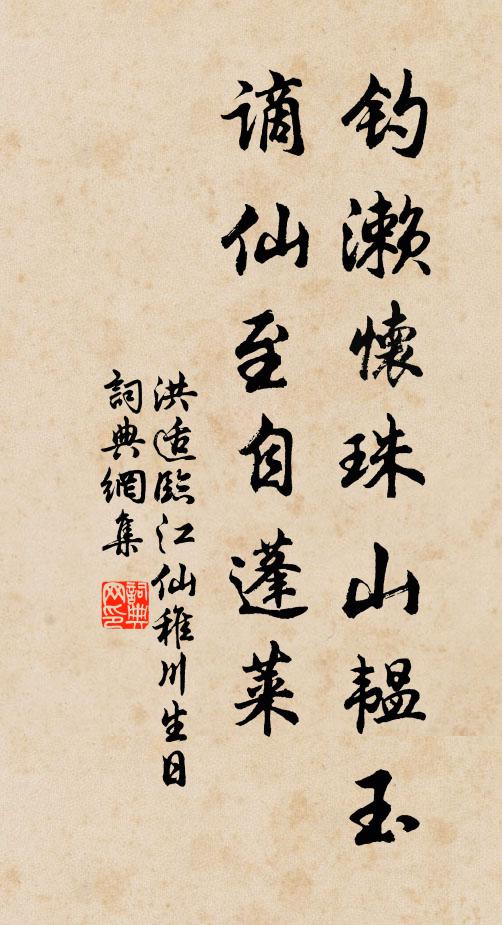 钓濑懷珠山韫玉
谪仙至自蓬莱
洪适臨江仙稚川生日
詞典網集
詞典网印